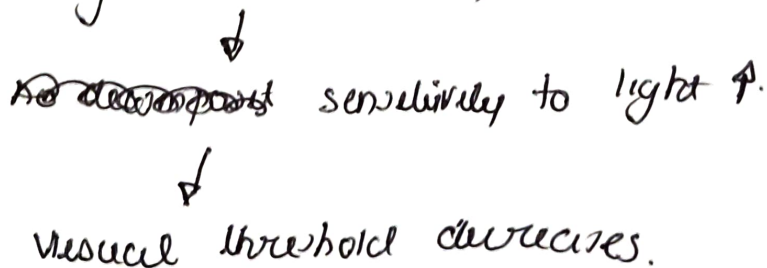 ↓
sensitively to light ↑.
↓
visual threshold decreases.